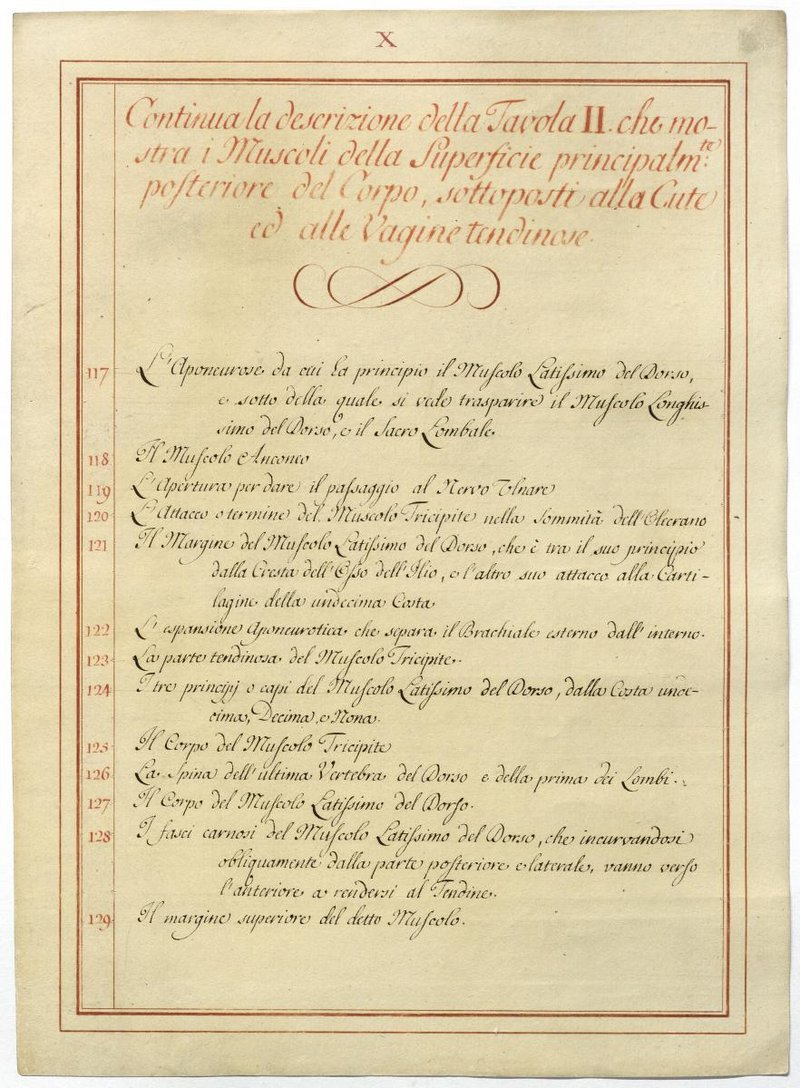 X
Continua la descrizione della Tavola II. che mo-
stra i Muscoli della Superficie principalm:te
posteriore del Corpo, sottoposti alla Cute
ed alle Vagine tendinose.
117 L'Aponeurose da cui ha principio il Muscolo Latissimo del Dorso,
e sotto della quale si vede trasparire il Muscolo Longhis-
simo del Dorso, e il Sacro Lombale
118 Il Muscolo Anconeo
119 L'Apertura per dare il passaggio al Nervo Ulnare
120 L'Attacco o termine del Muscolo Tricipite nella Sommità dell'Olecrano
121 Il Margine del Muscolo Latissimo del Dorso, che è tra il suo principio
dalla Cresta dell'Osso dell'Ilio, e l'altro suo attacco alla Carti-
lagine della undecima Costa
122 L'espansione Aponeurotica che separa il Brachiale esterno dall'interno.
123 La parte tendinosa del Muscolo Tricipite.
124 I tre principj o capi del Muscolo Latissimo del Dorso, dalla Costa unde-
cima, Decima, e Nona.
125 Il Corpo del Muscolo Tricipite
126 La Spina dell'ultima Vertebra del Dorso e della prima dei Lombi.
127 Il Corpo del Muscolo Latissimo del Dorso.
128 I fasci carnosi del Muscolo Latissimo del Dorso, che incurvandosi
obliquamente dalla parte posteriore e laterale, vanno verso
l'anteriore a rendersi al Tendine.
129 Il margine superiore del detto Muscolo.